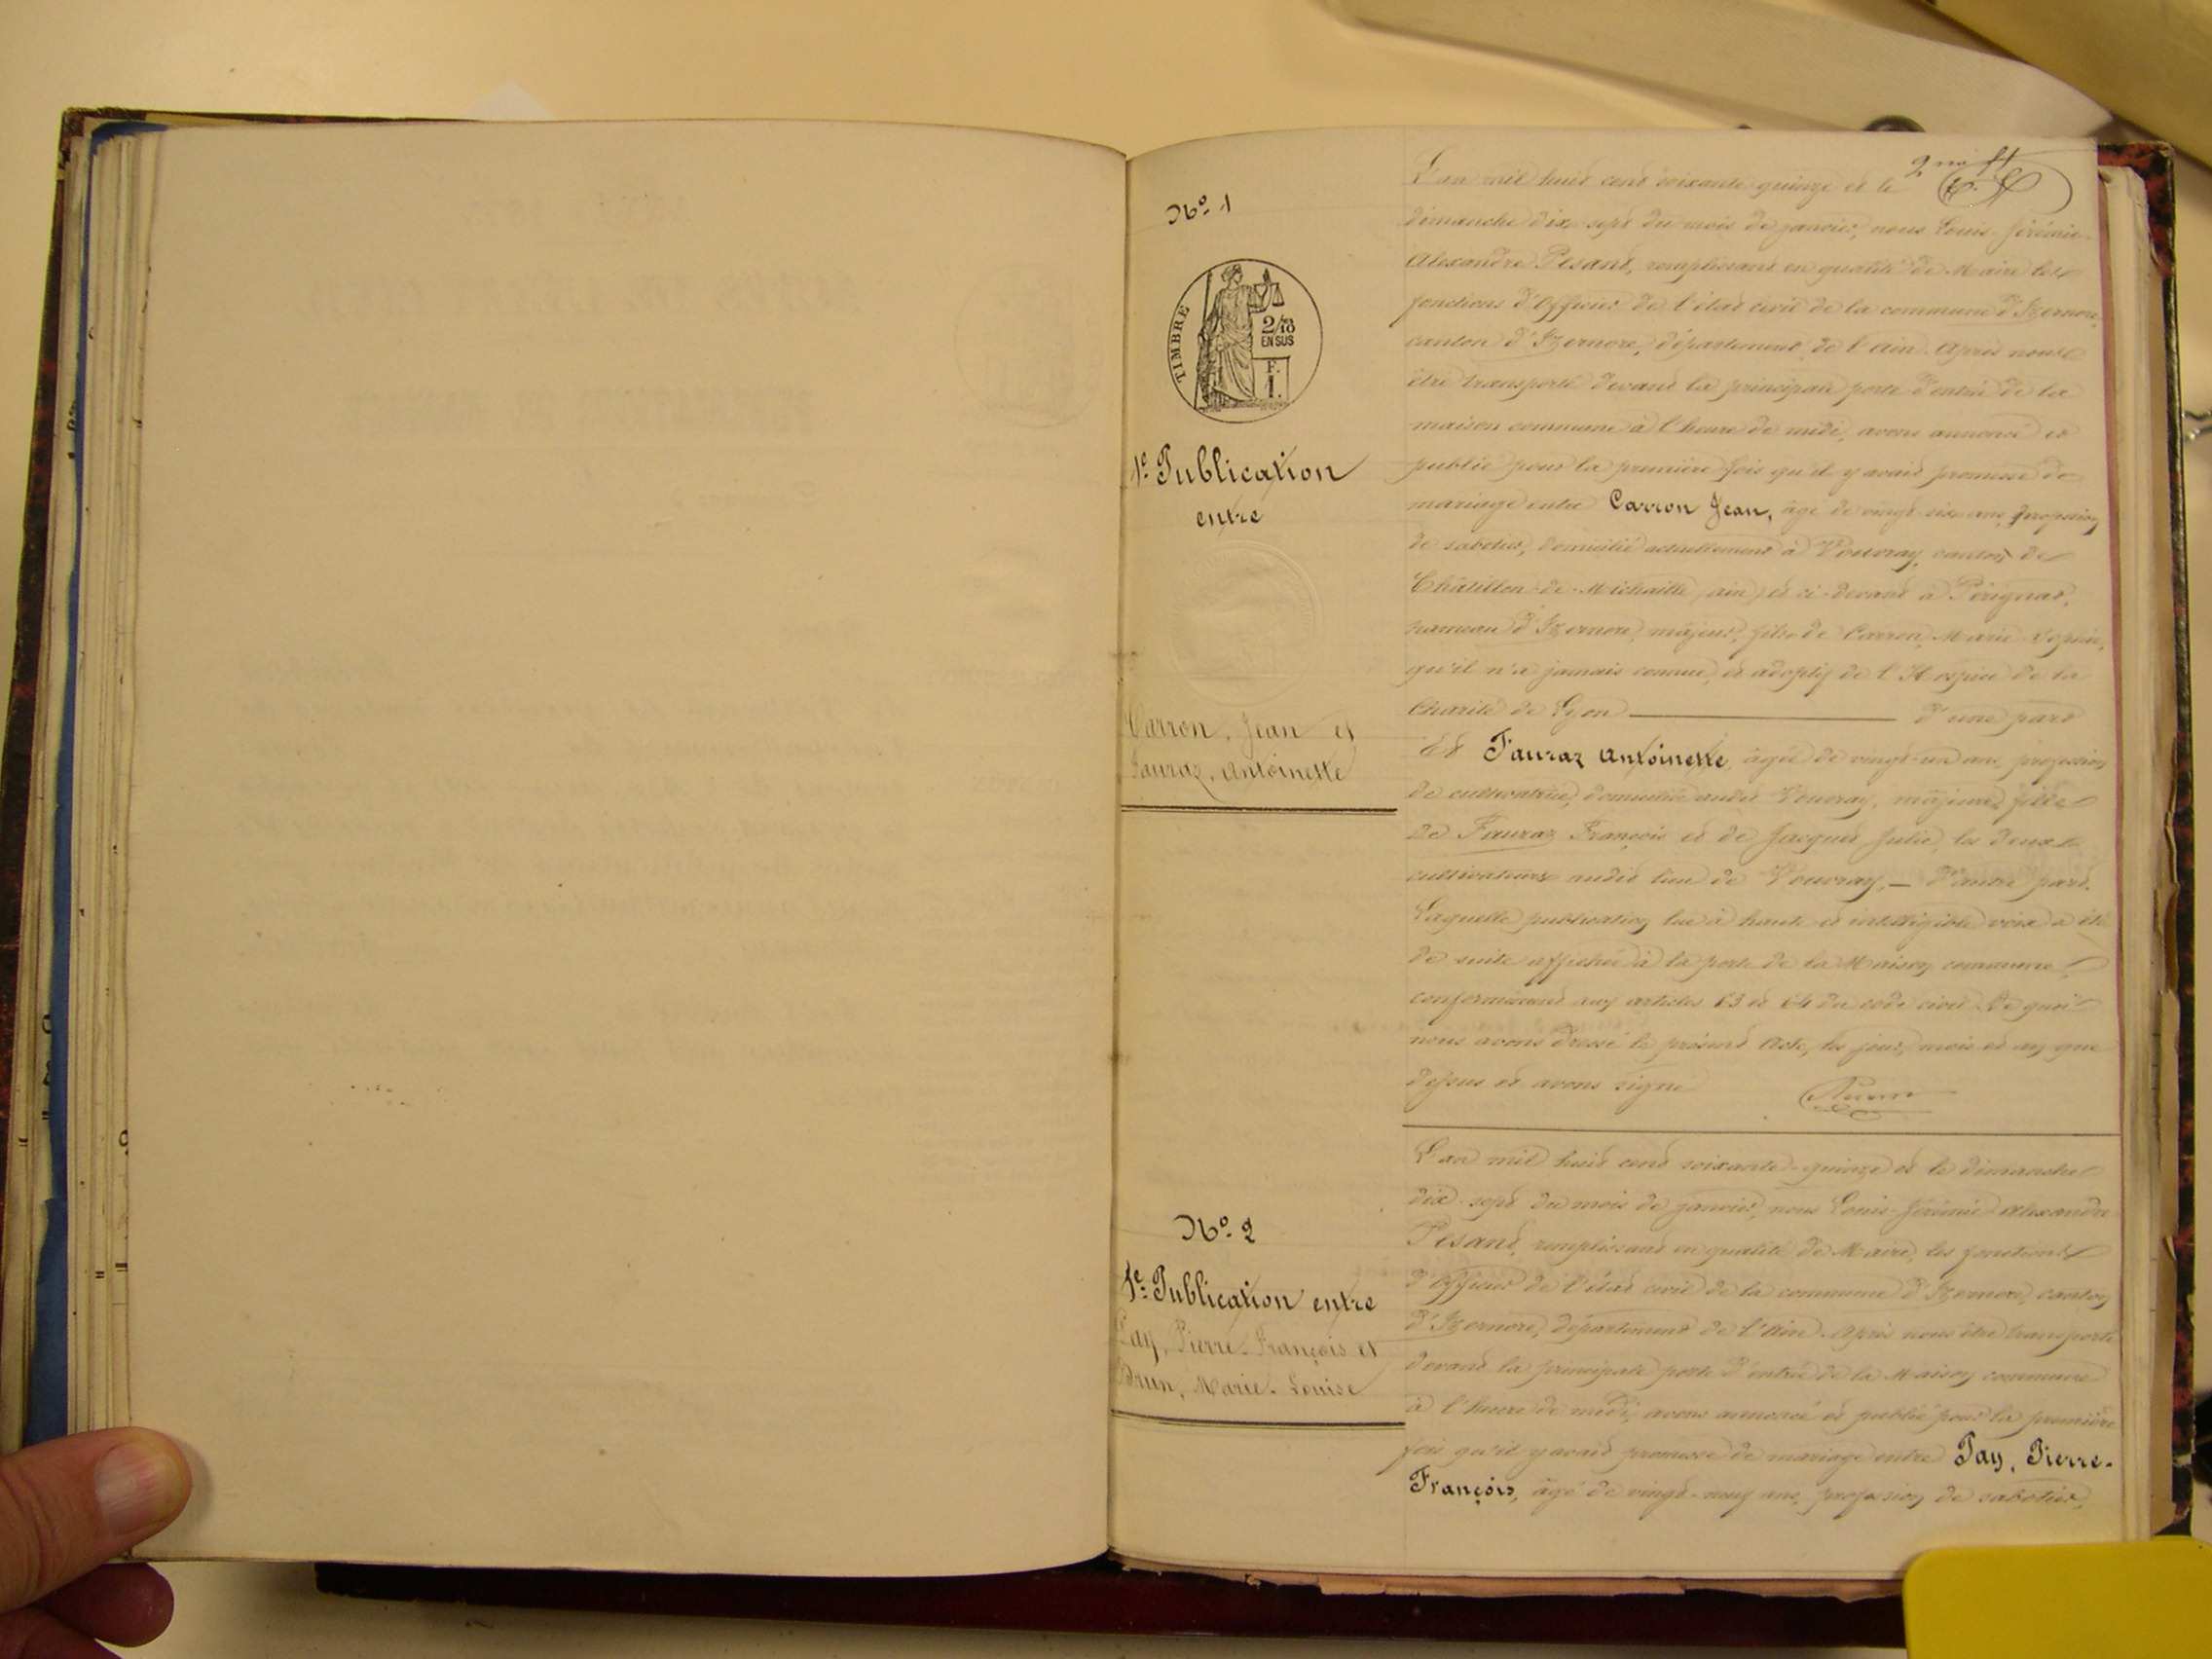 Nº 1
TIMBRE
2/10
EN SUS
F.
1.
1e Publication
entre
Carron, Jean et
Fauraz, Antoinette
L'an mil huit cent soixante-quinze et le
dimanche dix-sept du mois de janvier, nous Louis-Jérémie-
Alexandre Pesant, remplissant en qualité de Maire les
fonctions d'Officier de l'état civil de la commune d'Izernore,
canton d'Izernore, département de l'Ain. Après nous
être transporté devant la principale porte d'entrée de la
maison commune à l'heure de midi, avons annoncé et
publié pour la première fois qu'il y avait promesse de
mariage entre Carron Jean, âgé de vingt-six ans, profession
de sabotier, domicilié actuellement à Vouvray, canton de
Châtillon-de-Michaille (ain) et ci-devant à Pérignat,
hameau d'Izernore, majeur, fils de Carron, Marie
qu'il n'a jamais connue, et adoptif de l'Hospice de la
Charité de Lyon d'une part
Et Fauraz Antoinette, âgée de vingt-un ans, profession
de cultivatrice, domiciliée audit Vouvray, majeure, fille
de Fauraz François et de Jacquet Julie, les deux
cultivateurs audit lieu de Vouvray, — D'autre part.
Laquelle publication lue à haute et intelligible voix a été
de suite affichée à la porte de la Maison commune,
conformément aux articles 63 et 64 du code civil. De quoi
nous avons dressé le présent Acte, les jour, mois et an que
dessus et avons signé
Nº 2
1e Publication entre
Pay, Pierre-François et
Brun, Marie-Louise
L'an mil huit cent soixante-quinze et le dimanche
dix-sept du mois de janvier, nous Louis-Jérémie-Alexandre
Pesant, remplissant en qualité de Maire, les fonctions
d'Officier de l'état civil de la commune d'Izernore, canton
d'Izernore, département de l'Ain. Après nous être transporté
devant la principale porte d'entrée de la Maison commune
à l'heure de midi, avons annoncé et publié pour la première
fois qu'il y avait promesse de mariage entre Pay, Pierre-
François, âgé de vingt-neuf ans, profession de sabotier,